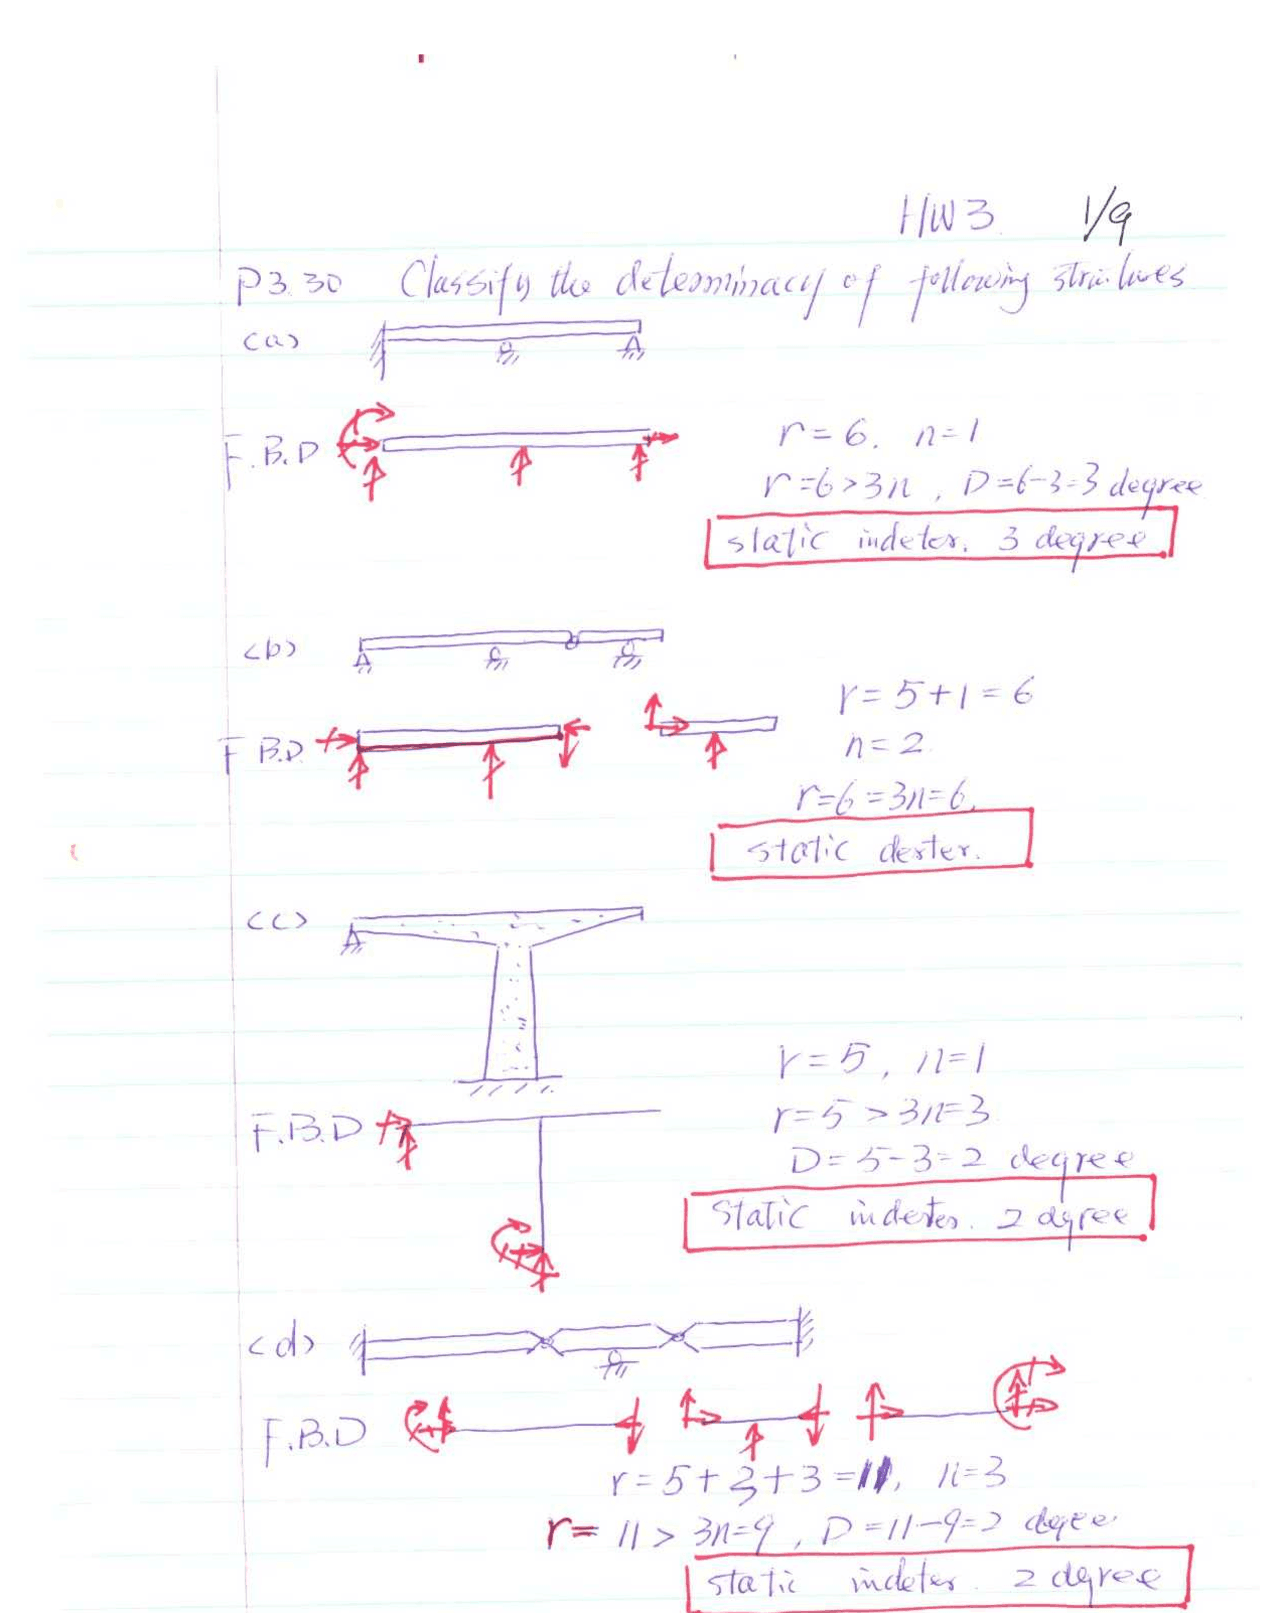 HW3 1/9
P3.30 Classify the determinacy of following structures
(a)
F.B.D
r=6, n=1
r=6>3n, D=6-3=3 degree
static indeter. 3 degree
(b)
r=5+1=6
F B.D.
n=2.
r=6=3n=6.
static dexter.
(c)
r=5, n=1
F.B.D
r=5>3n=3
D=5-3=2 degree
Static indeter. 2 dgree
(d)
F.B.D
r=5+3+3=11, n=3
r=11>3n=9, D=11-9=2 degee
static indeter. 2 degree